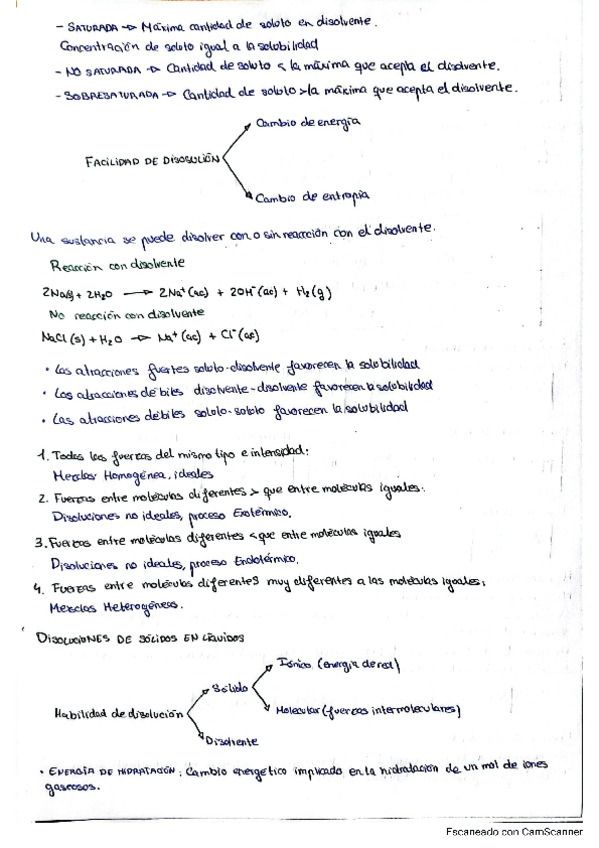 - SATURADA → Máxima cantidad de soluto en disolvente.
Concentración de soluto igual a la solubilidad
- NO SATURADA → Cantidad de soluto < la máxima que acepta el disolvente.
- SOBRESATURADA → Cantidad de soluto > la máxima que acepta el disolvente.
Cambio de energía
FACILIDAD DE DISOLUCIÓN
Cambio de entropia
Una sustancia se puede disolver con o sin reacción con el disolvente.
Reacción con disolvente
2Na(s) + 2H₂O → 2Na⁺(ac) + 2OH⁻(ac) + H₂(g)
No reacción con disolvente
NaCl (s) + H₂O → Na⁺(ac) + Cl⁻(ac)
• Las atracciones fuertes soluto-disolvente favorecen la solubilidad
• Las atracciones débiles disolvente-disolvente favorecen la solubilidad
• Las atracciones débiles soluto-soluto favorecen la solubilidad
1. Todas las fuerzas del mismo tipo e intensidad:
Mezclas Homogénea, ideales
2. Fuerzas entre moléculas diferentes > que entre moléculas iguales:
Disoluciones no ideales, proceso Exotérmico.
3. Fuerzas entre moléculas diferentes < que entre moléculas iguales
Disoluciones no ideales, proceso Endotérmico.
4. Fuerzas entre moléculas diferentes muy diferentes a las moléculas iguales:
Mezclas Heterogéneas.
DISOLUCIONES DE SÓLIDOS EN LÍQUIDOS
Iónico (energía de red)
Sólido
Habilidad de disolución
Molecular (fuerzas intermoleculares)
Disolvente
• ENERGÍA DE HIDRATACIÓN: Cambio energético implicado en la hidratación de un mol de iones
gaseosos.
Escaneado con CamScanner